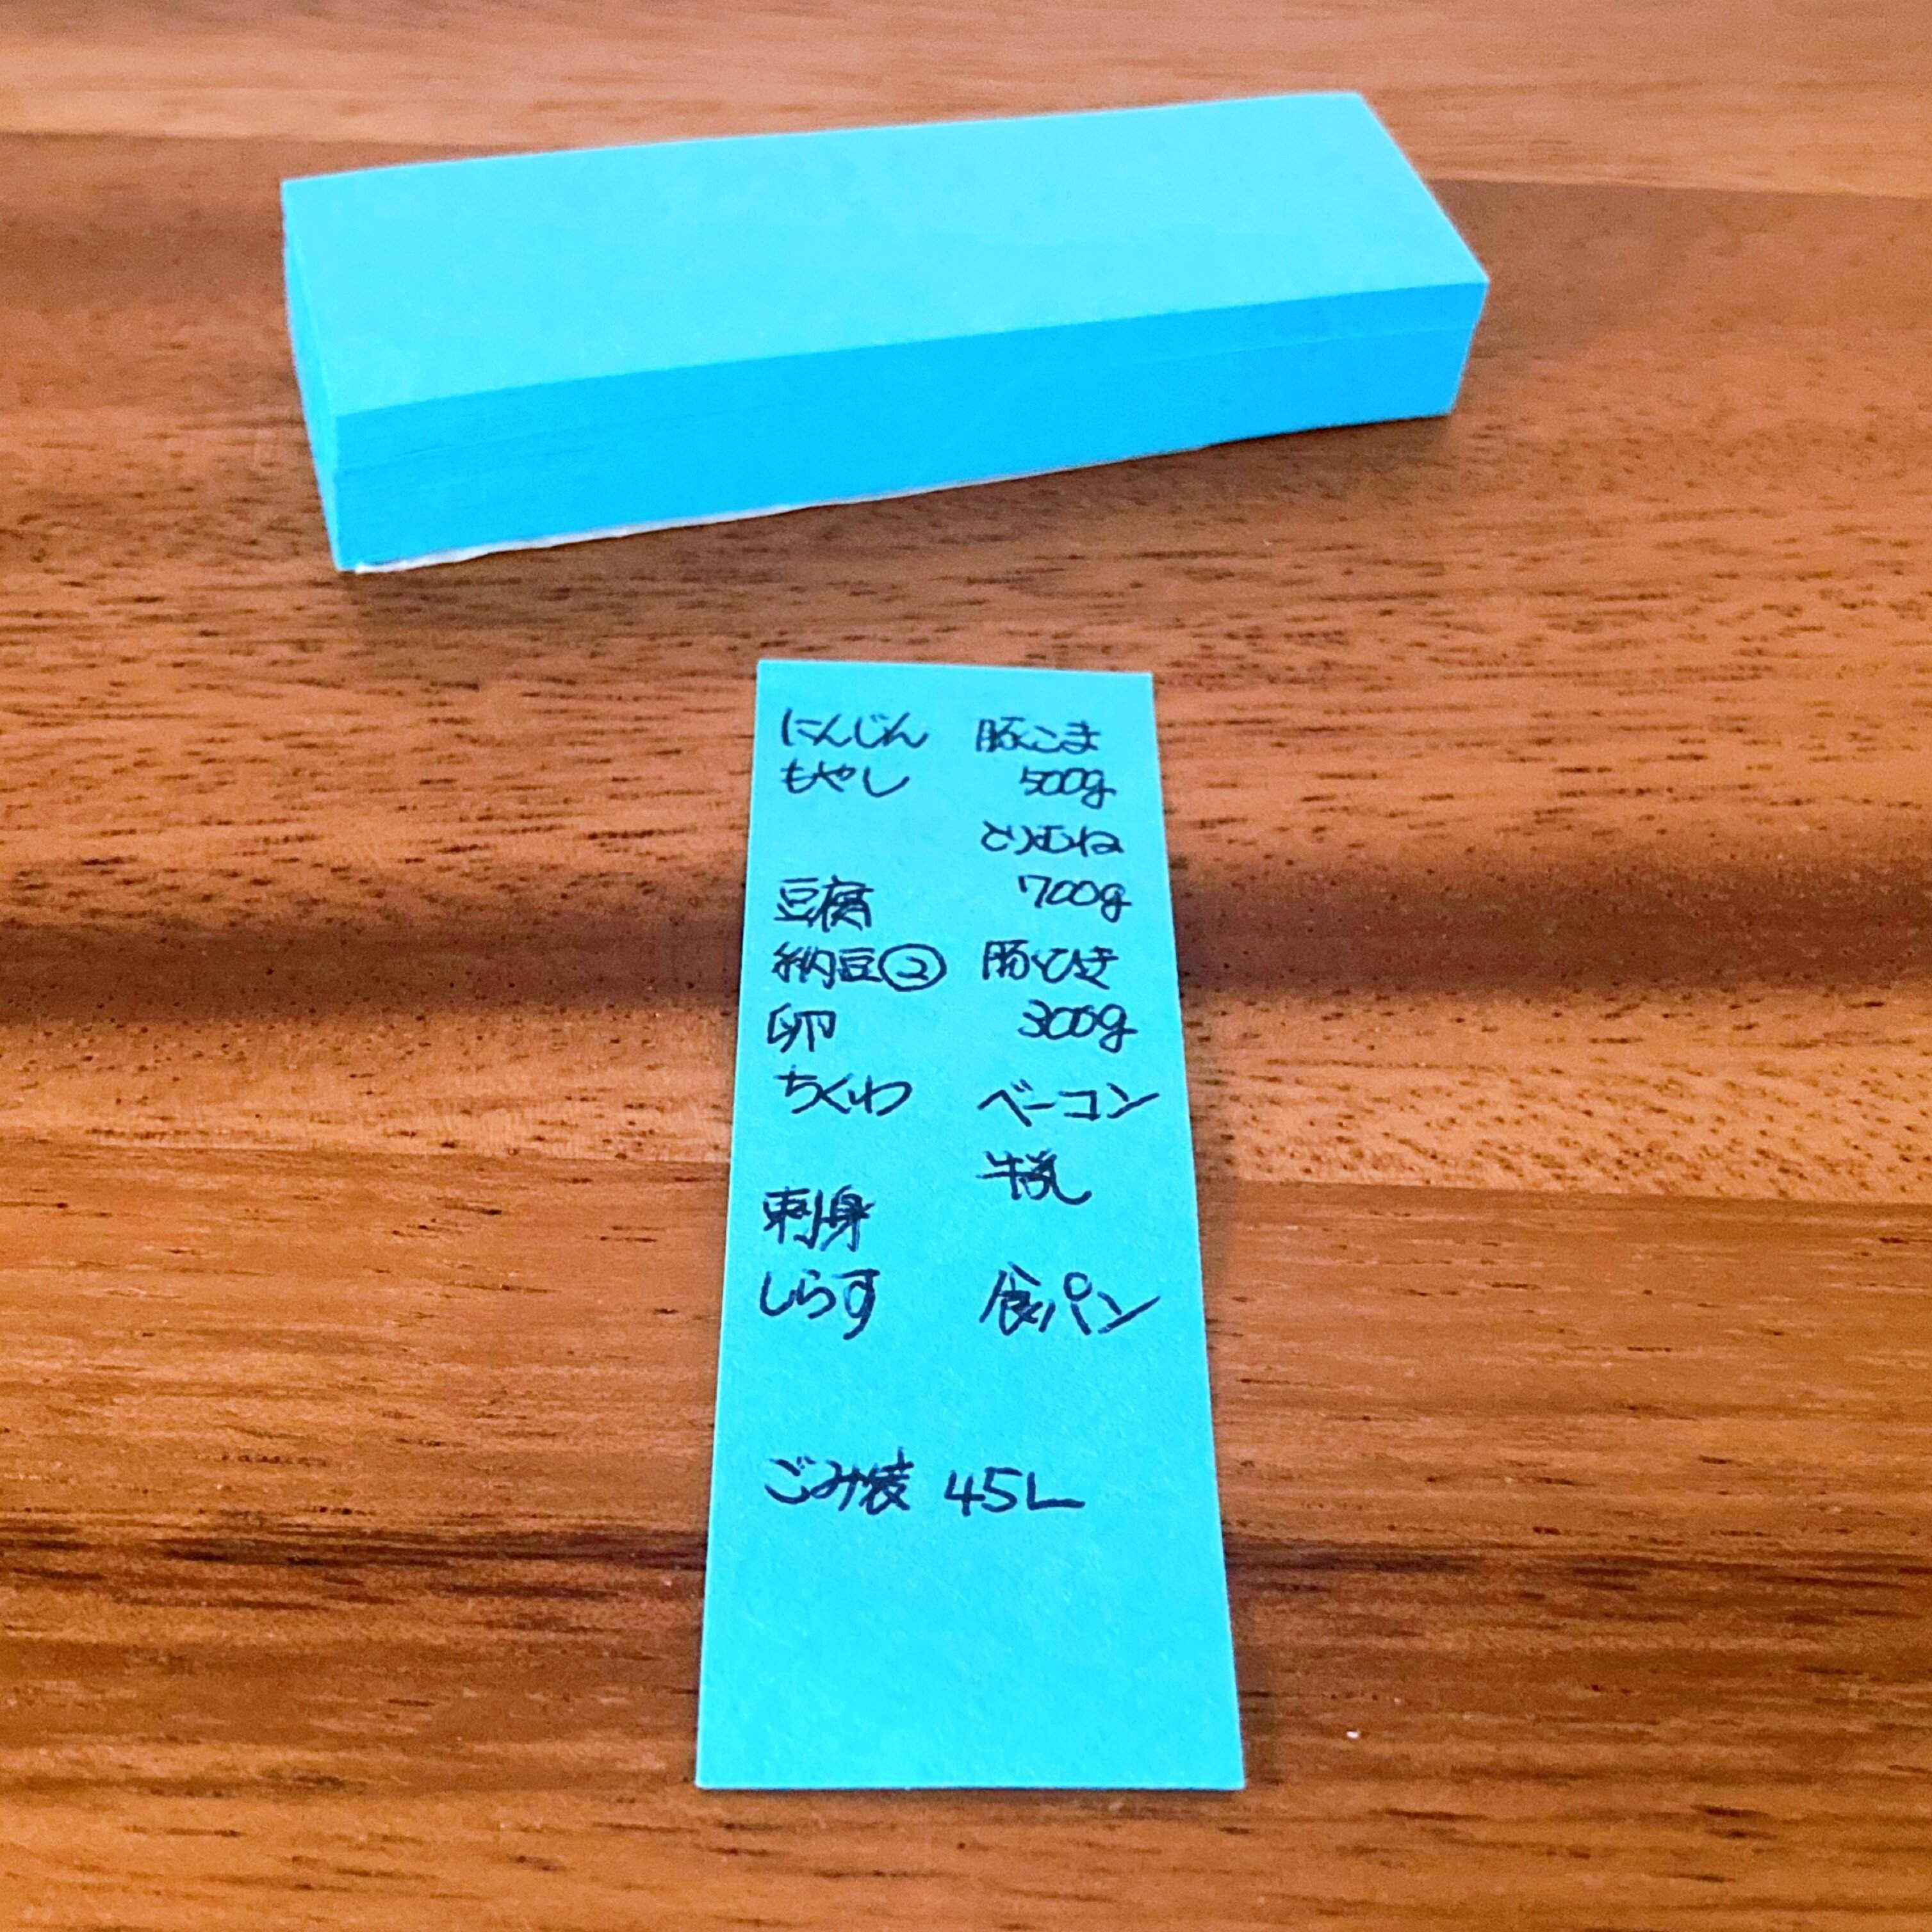 にんじん
もやし
豆腐
納豆②
卵
ちくわ
刺身
しらす
豚こま
500g
とりむね
700g
豚ひき
300g
ベーコン
牛乳
食パン
ごみ袋 45L